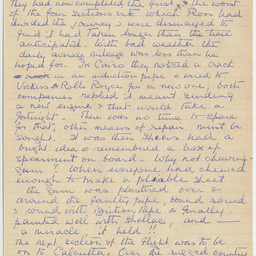 They had now completed the first & the worst
of the four sections into which Ross had
divided the journey & were dismayed to
find it had taken longer than the time
anticipated. With bad weather the
daily average mileage was less than he
hoped for. In Cairo they noticed a crack
in an induction pipe & wired to
Vickers & Rolls Royce for a new one; both
companies replied it meant sending
a new engine & that would take a
fortnight. There was no time to spare
for that, other means of repair must be
sought. It was then Shiers had a
bright idea & remembered a box of
spearmint on board. Why not chewing-
gum? When everyone had chewed
enough to make a pliable sheet
the gum was plastered over &
around the faulty pipe, bound round
& round with friction tape & finally
painted well with shellac, and —
a miracle it held!!
The next section of the flight was to be
on to Calcutta, over the rugged country